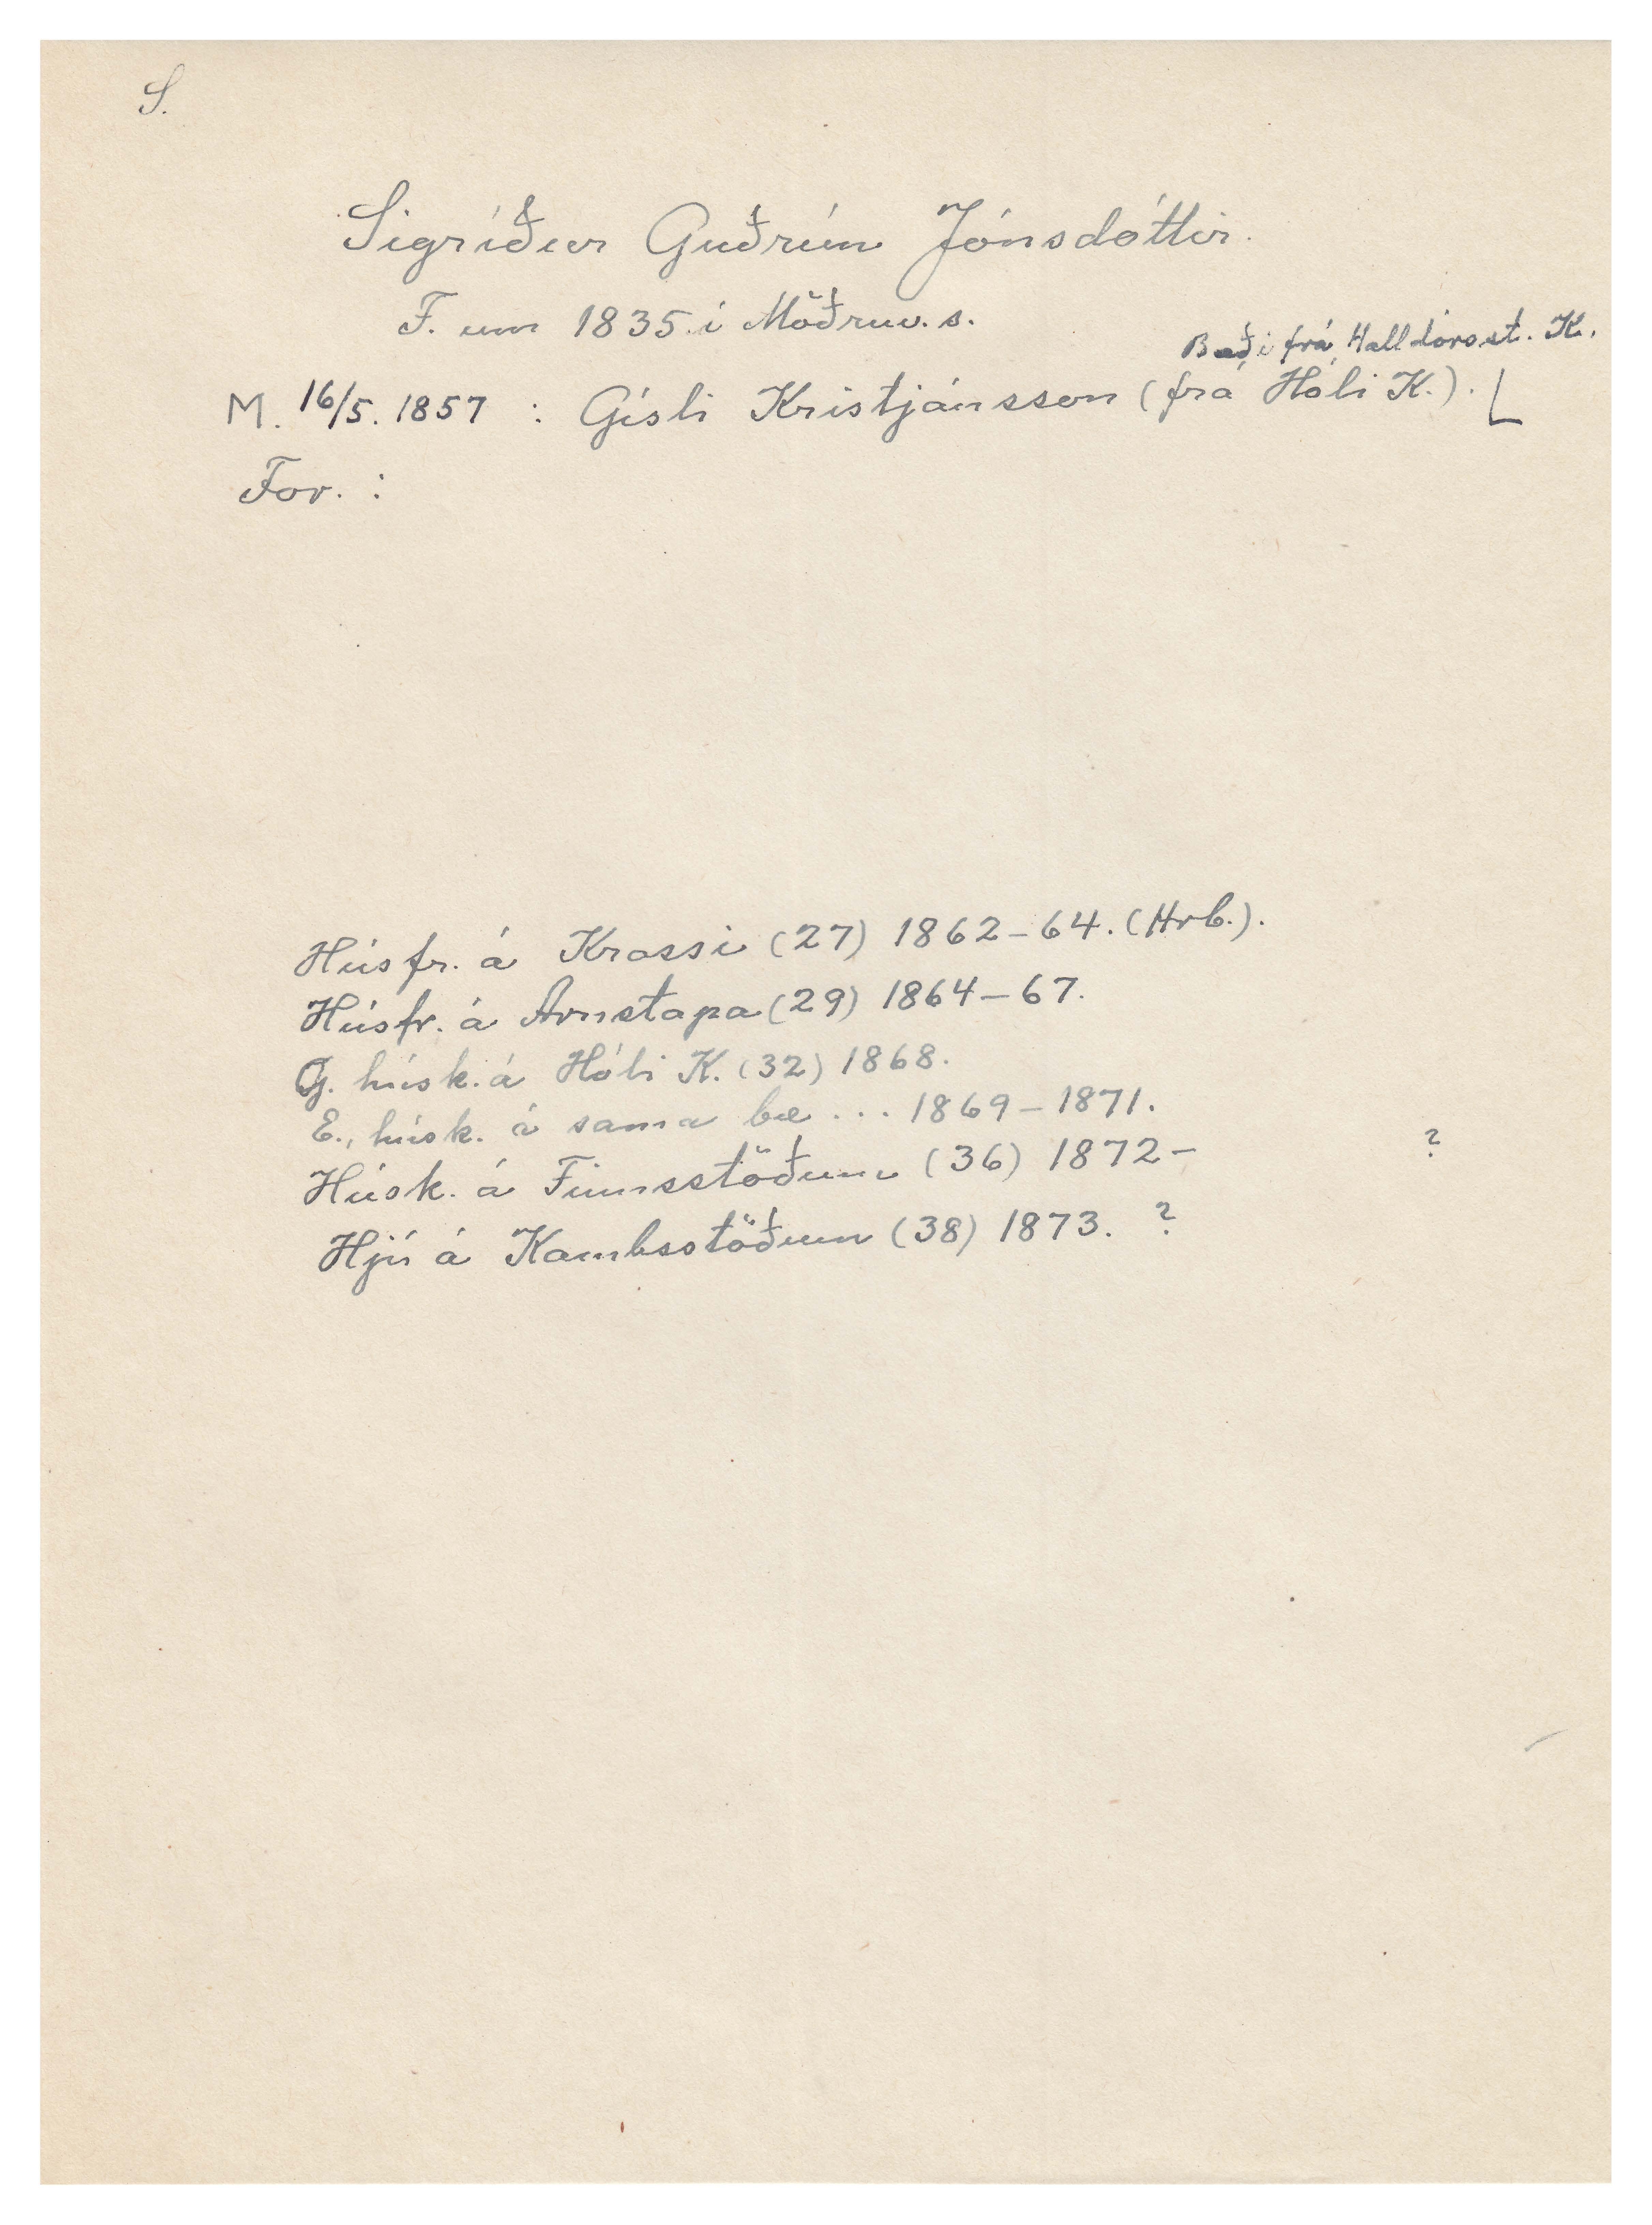 S.
Sigríður Guðrún Jónsdóttir.
F. um 1835 í Möðruv.s.
Bæði frá Halldórsst. K.
M. 16/5. 1857 : Gísli Kristjánsson (frá Hóli K.).
For. :
Húsfr. á Krossi (27) 1862-64. (Hrb.).
Húsfr. á Arnstapa (29) 1864-67.
G. húsk. á Hóli K. (32) 1868.
E., húsk. á sama bæ ... 1869-1871.
Húsk. á Finnsstöðum (36) 1872- ?
Hjú á Kambsstöðum (38) 1873. ?